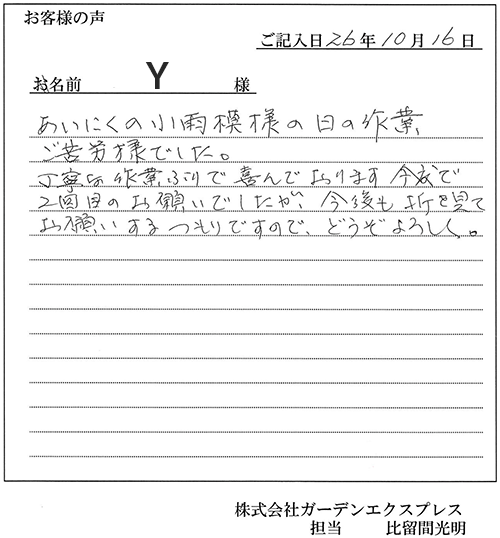 お客様の声
ご記入日 26年 10月 16日
お名前 Y 様
あいにくの小雨模様の日の作業
ご苦労様でした。
丁寧な作業ぶりで喜んでおります 今度で
2回目のお願いでしたが、今後も折を見て
お願いするつもりですので、どうぞよろしく。
株式会社ガーデンエクスプレス
担当 比留間光明